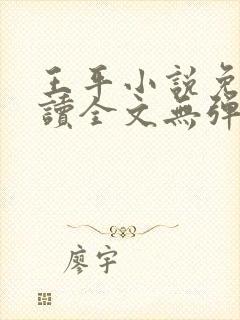 王平小說免
讀全文無彈
廖宇